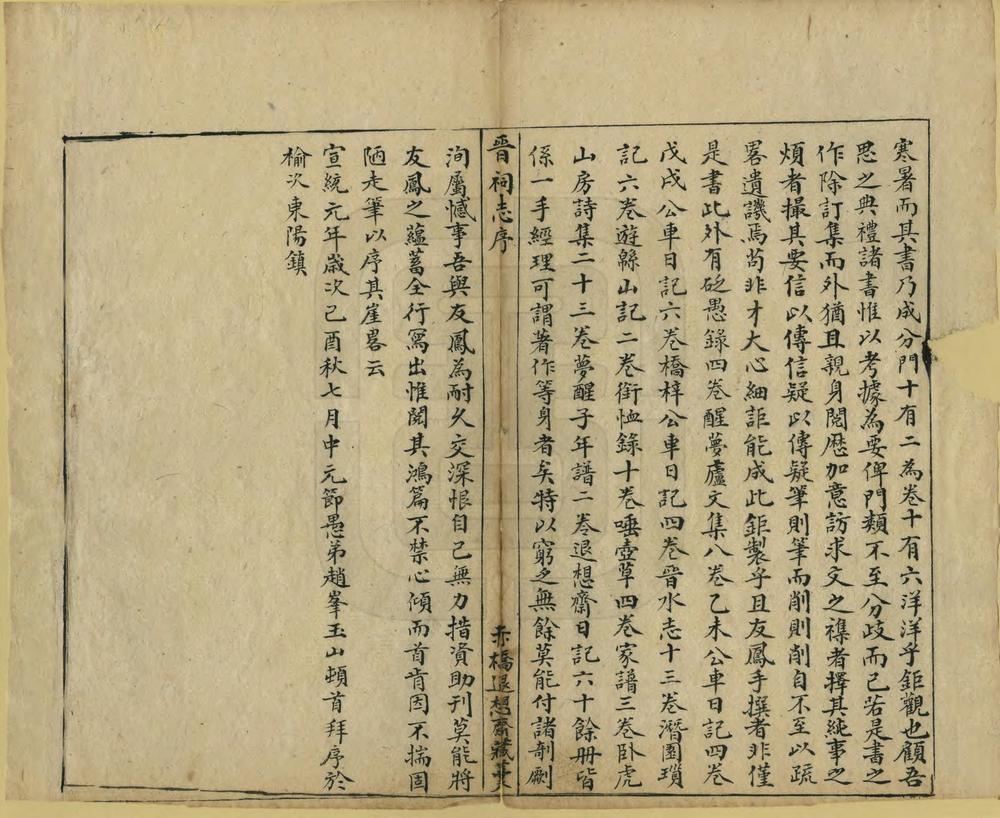 寒暑而其書乃成分門十有二為卷十有六洋洋乎鉅觀也顧吾
思之典禮諸書惟以考據為要俾門類不至分歧而已若是書之
作除訂集而外猶且親身閱歷加意訪求文之襍者擇其純事之
煩者撮其要信以傳信疑以傳疑筆則筆而削則削自不至以疏
畧遺譏焉苟非才大心細詎能成此鉅製乎且友鳳手撰者非僅
是書此外有砭愚錄四卷醒夢廬文集八卷乙未公車日記四卷
戊戌公車日記六卷橋梓公車日記四卷晉水志十三卷潛園瑣
記六卷遊緜山記二卷銜恤錄十卷唾壺草四卷家譜三卷卧虎
山房詩集二十三卷夢醒子年譜二卷退想齋日記六十餘冊皆
係一手經理可謂著作等身者矣特以窮乏無餘莫能付諸剞劂
晉祠志序
赤橋退想齋藏
洵屬憾事吾與友鳳為耐久交深恨自己無力措資助刊莫能將
友鳳之蘊蓄全行寫出惟閱其鴻篇不禁心傾而首肯因不揣固
陋走筆以序其崖畧云
宣統元年歲次己酉秋七月中元節愚弟趙峯玉山頓首拜序於
榆次東陽鎮